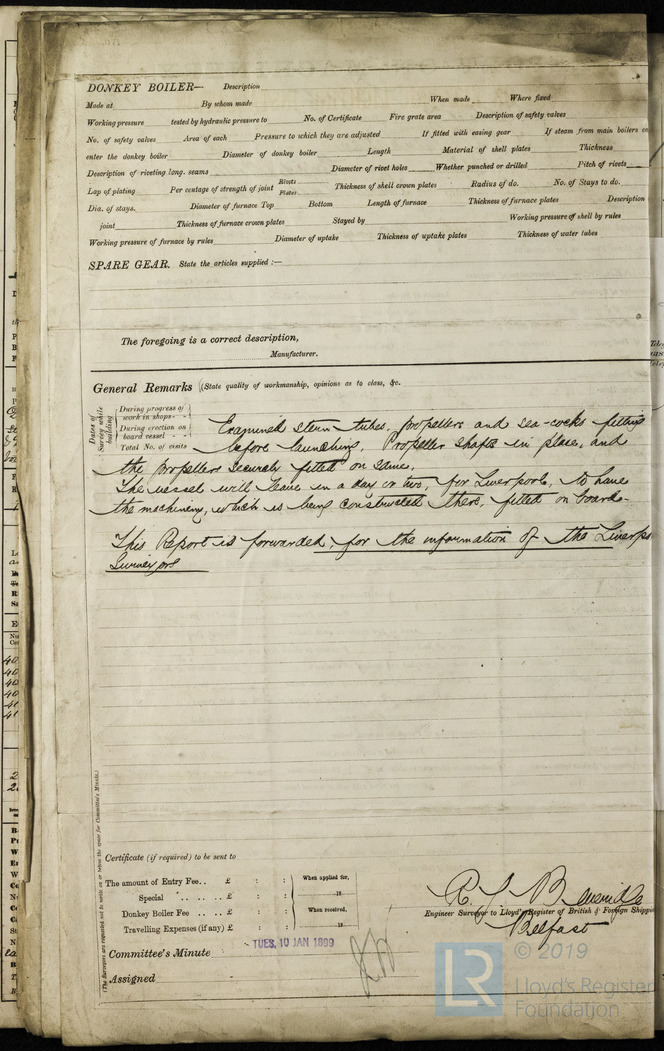 DONKEY BOILER— Description
Made at By whom made When made Where fixed
Working pressure tested by hydraulic pressure to No. of Certificate Fire grate area Description of safety valves
No. of safety valves Area of each Pressure to which they are adjusted If fitted with easing gear If steam from main boilers can
enter the donkey boiler Diameter of donkey boiler Length Material of shell plates Thickness
Description of riveting long. seams Diameter of rivet holes Whether punched or drilled Pitch of rivets
Lap of plating Per centage of strength of joint Rivets Plates Thickness of shell crown plates Radius of do. No. of Stays to do.
Dia. of stays. Diameter of furnace Top Bottom Length of furnace Thickness of furnace plates Description
joint Thickness of furnace crown plates Stayed by Working pressure of shell by rules
Working pressure of furnace by rules Diameter of uptake Thickness of uptake plates Thickness of water tubes
SPARE GEAR. State the articles supplied :—
The foregoing is a correct description,
Manufacturer.
General Remarks (State quality of workmanship, opinions as to class, &c.
Dates of Survey while building
During progress of work in shops - -
During erection on board vessel - -
Total No. of visits
Examined stern tubes, propellers and sea-cocks fitting
before launching. Propeller shafts in place, and
the propellers securely fitted on same.
The vessel will leave in a day or two, for Liverpool, to have
the machinery, which is being constructed there, fitted on board.
This Report is forwarded, for the information of the
Surveyors
(The Surveyors are requested not to write on or below the space for Committee's Minute.)
Certificate (if required) to be sent to
The amount of Entry Fee. . £ : : When applied for,
Special . . . . . £ : : 18
Donkey Boiler Fee . . . . £ : : When received,
Travelling Expenses (if any) £ : : 18
Engineer Surveyor to Lloyd's Register of British & Foreign Shipping
Belfast
TUES, 10 JAN 1899
Committee's Minute
Assigned
LR © 2019
Lloyd's Register
Foundation